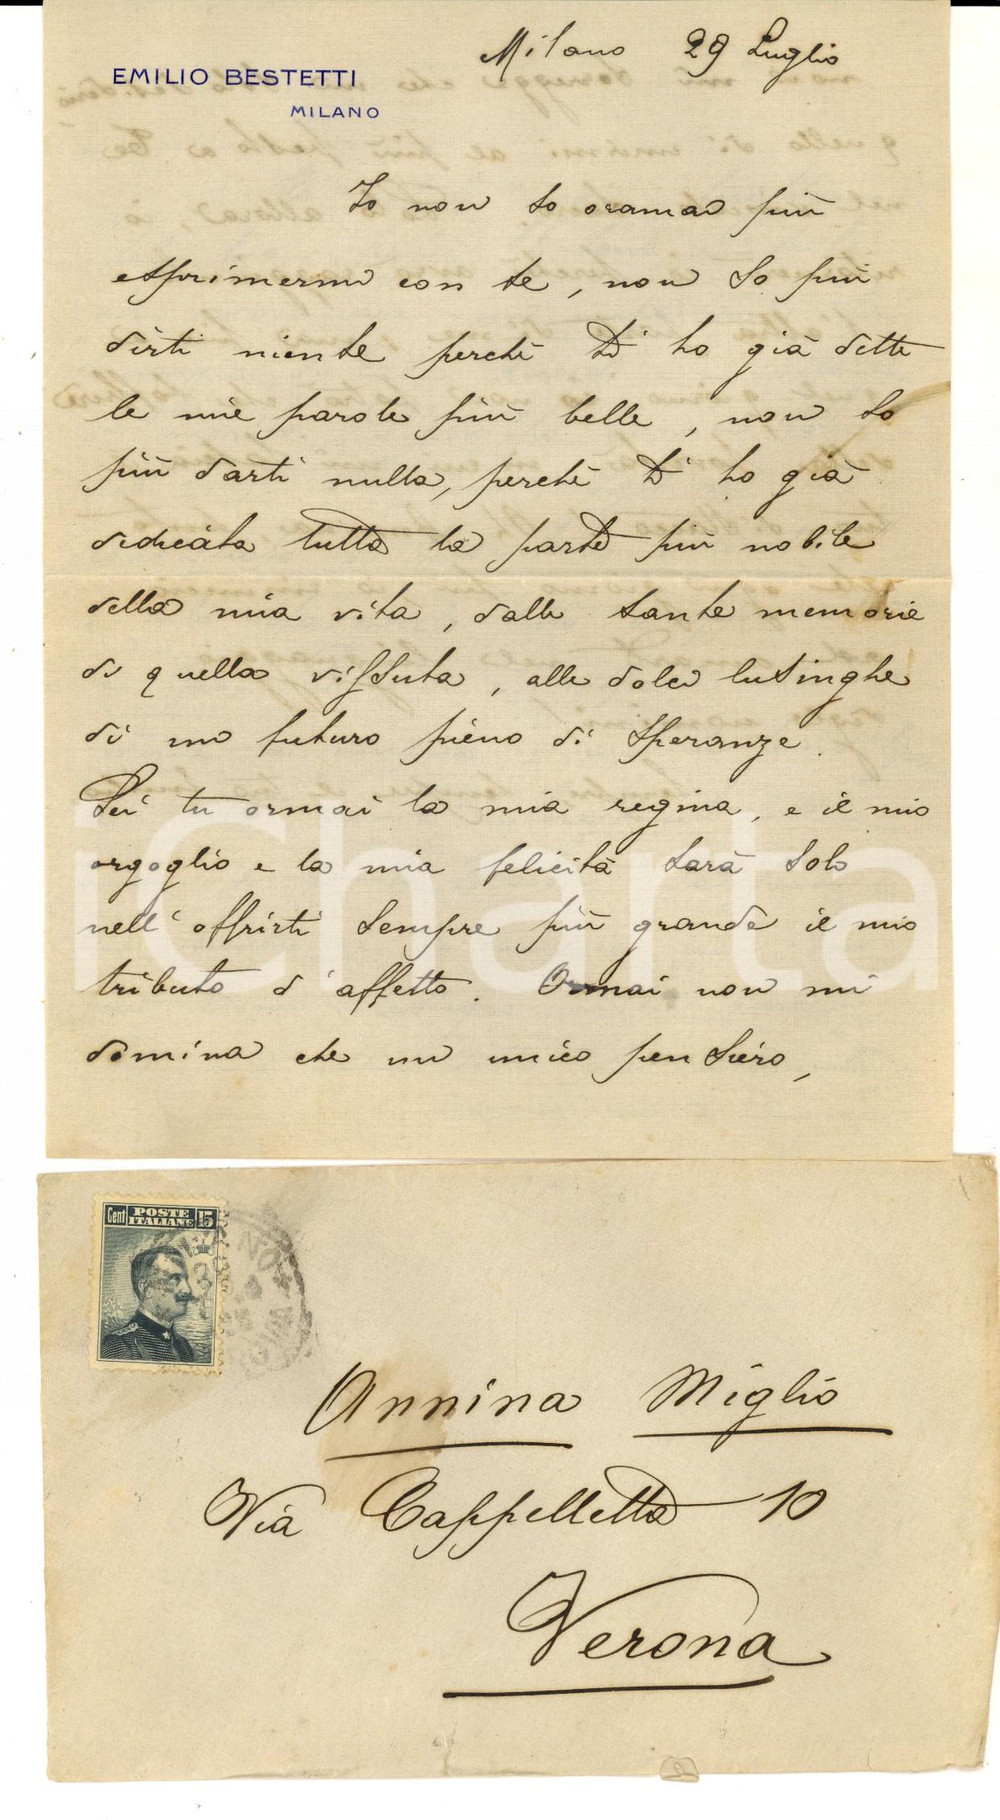 EMILIO BESTETTI
MILANO
Milano 29 Luglio
Io non so oramai più
esprimermi con te, non so più
dirti niente perchè Ti ho già dette
le mie parole più belle, non so
più darti nulla, perchè Ti ho già
dedicata tutta la parte più nobile
della mia vita, dalle sante memorie
di quella vissuta, alle dolci lusinghe
di un futuro pieno di speranze.
Sei tu ormai la mia regina, e il mio
orgoglio e la mia felicità sarà solo
nell'offrirti sempre più grande il mio
tributo d'affetto. Ormai non mi
domina che un unico pensiero,
icharta
Cent POSTE ITALIANE 15
Annina Miglio
Via Cappelletta 10
Verona